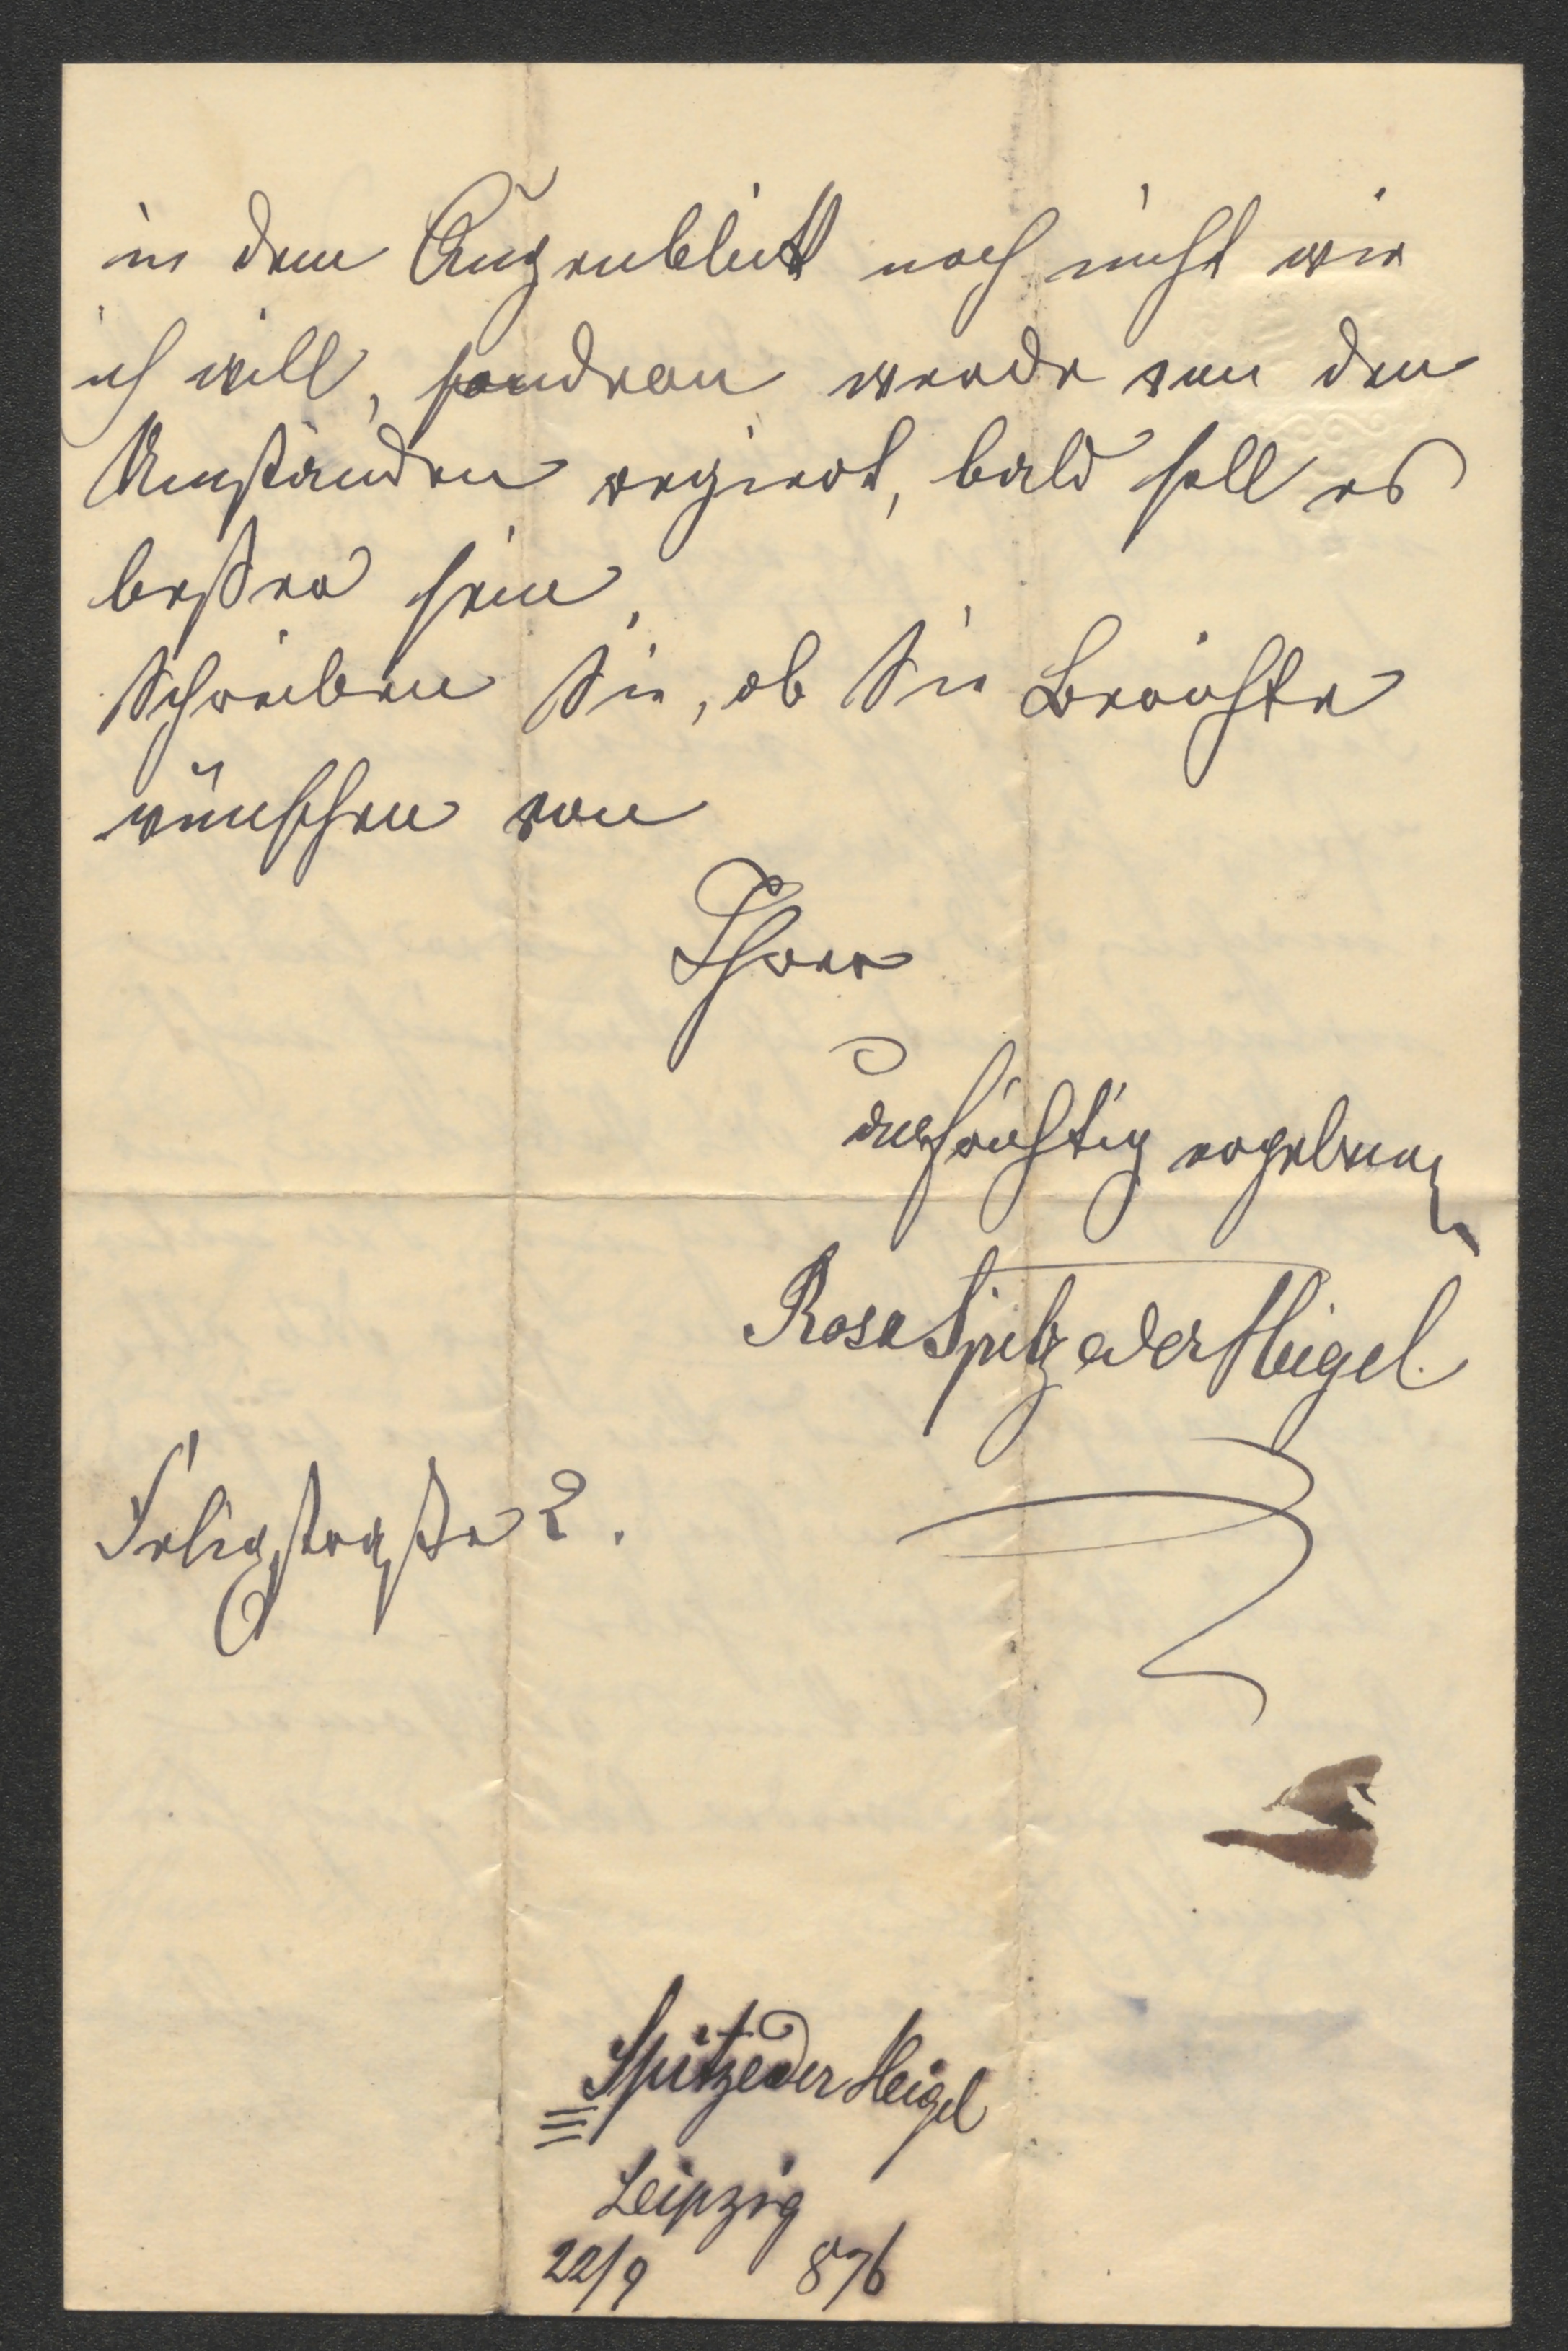 in dem Augenblick noch nicht wie
ich will, sondern werde von den
Umständen regiert, bald soll es
beßer sein.
Schreiben Sie, ob Sie Berichte
wünschen von
Ihrer
aufrichtig ergebenen
Rosa Spitzeder Heigel.
Felixstraße 2.
Spitzeder Heigel
Leipzig
22/9 876